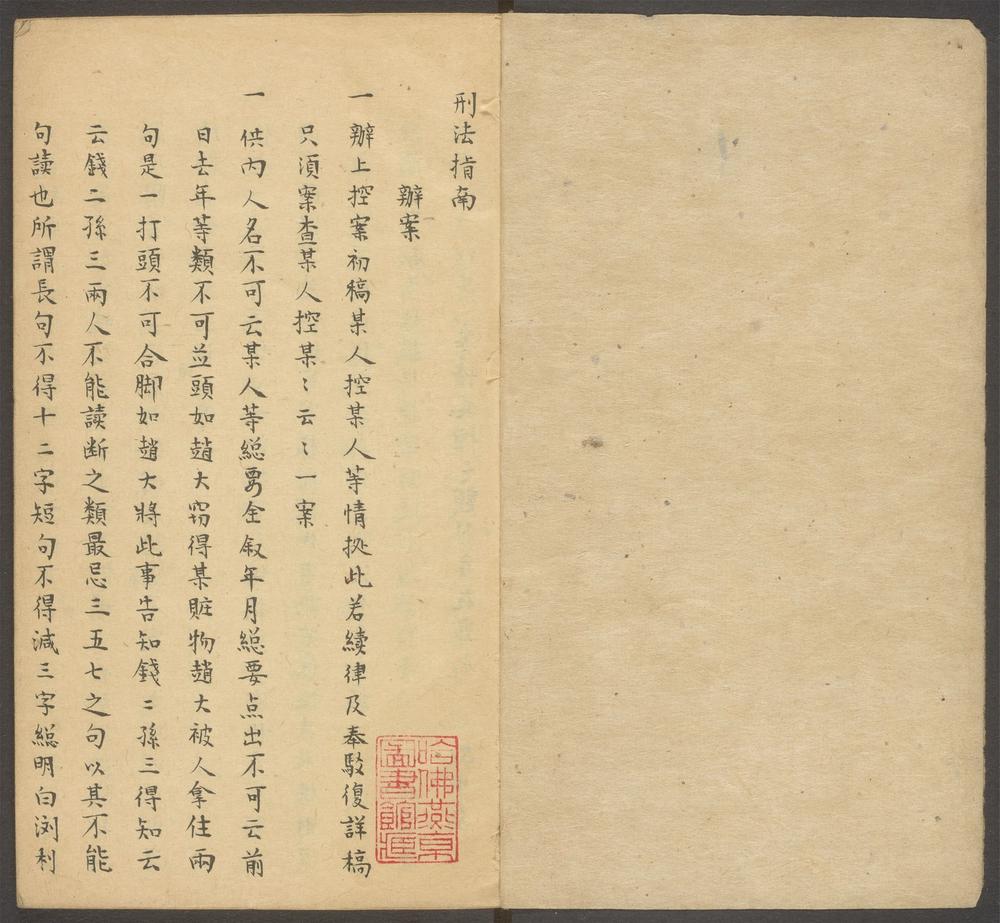 刑法指南
辦案
一 辦上控案初稿某人控某人等情挑此若續律及奉駁復詳稿
只須案查某人控某〻云〻一案
一 供內人名不可云某人等総要全叙年月総要点出不可云前
日去年等類不可並頭如趙大窃得某賍物趙大被人拿住兩
句是一打頭不可合脚如趙大將此事告知錢二孫三得知云
云錢二孫三兩人不能讀断之類最忌三五七之句以其不能
句讀也所謂長句不得十二字短句不得減三字総明白浏利
哈佛燕京
圖書館藏